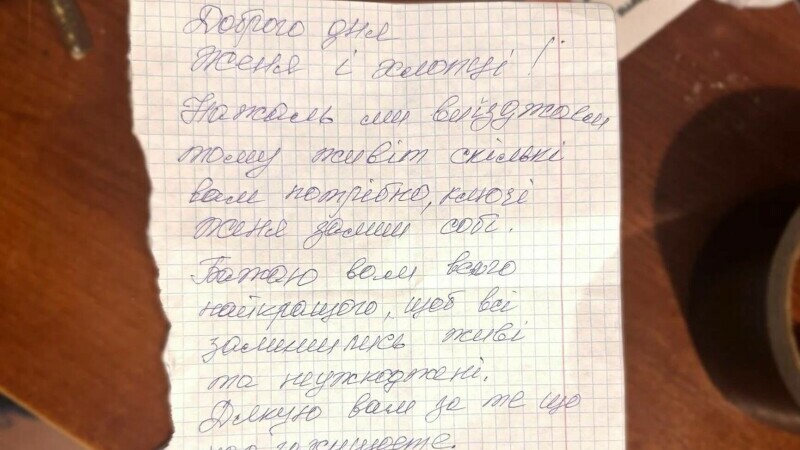 Доброго дня
Женя і хлопці!
Нажаль ми виїзджаєм
тому живіт скількі
вам потрібно, ключі
женя залиш собі.
Бажаю вам всього
найкращого, щоб всі
залишились живі
та неушкоджені.
Дякую вам за те що
нас захищаєте.